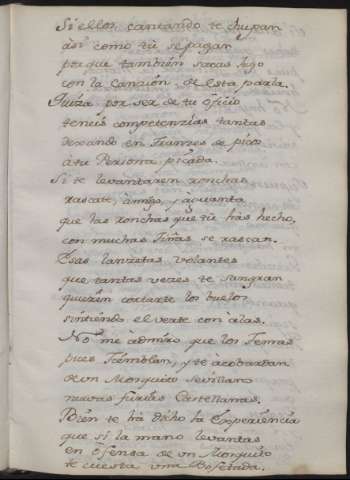 Si ellos cantando te chupan
asi como tu se pagan
porque tambien sacas jugo
con la Cancion, de esta parla.
Quiza por ser de tu oficio
teneis competenzias tantas
dexando en Trances se pico
à tu Persona picada.
Si te levantaren ronchas
rascate, àmigo, y àguanta
que las ronchas que tu hàs hecho,
con muchas Tiñas se rascan.
Esas lanzetas volantes
que tantas veces te sangran
quieren cortarte los buelos
sintiendo el verte con àlas.
No me àdmiro que los Temas
pues Tiemblan, y te àcobardan
de un Mosquito Sevillano
nuevas furias Castellanas.
Bien te hà dicho la Experiencia
que si la mano levantas
en ofensa de un Mosquito
te cuesta una Bofetada.